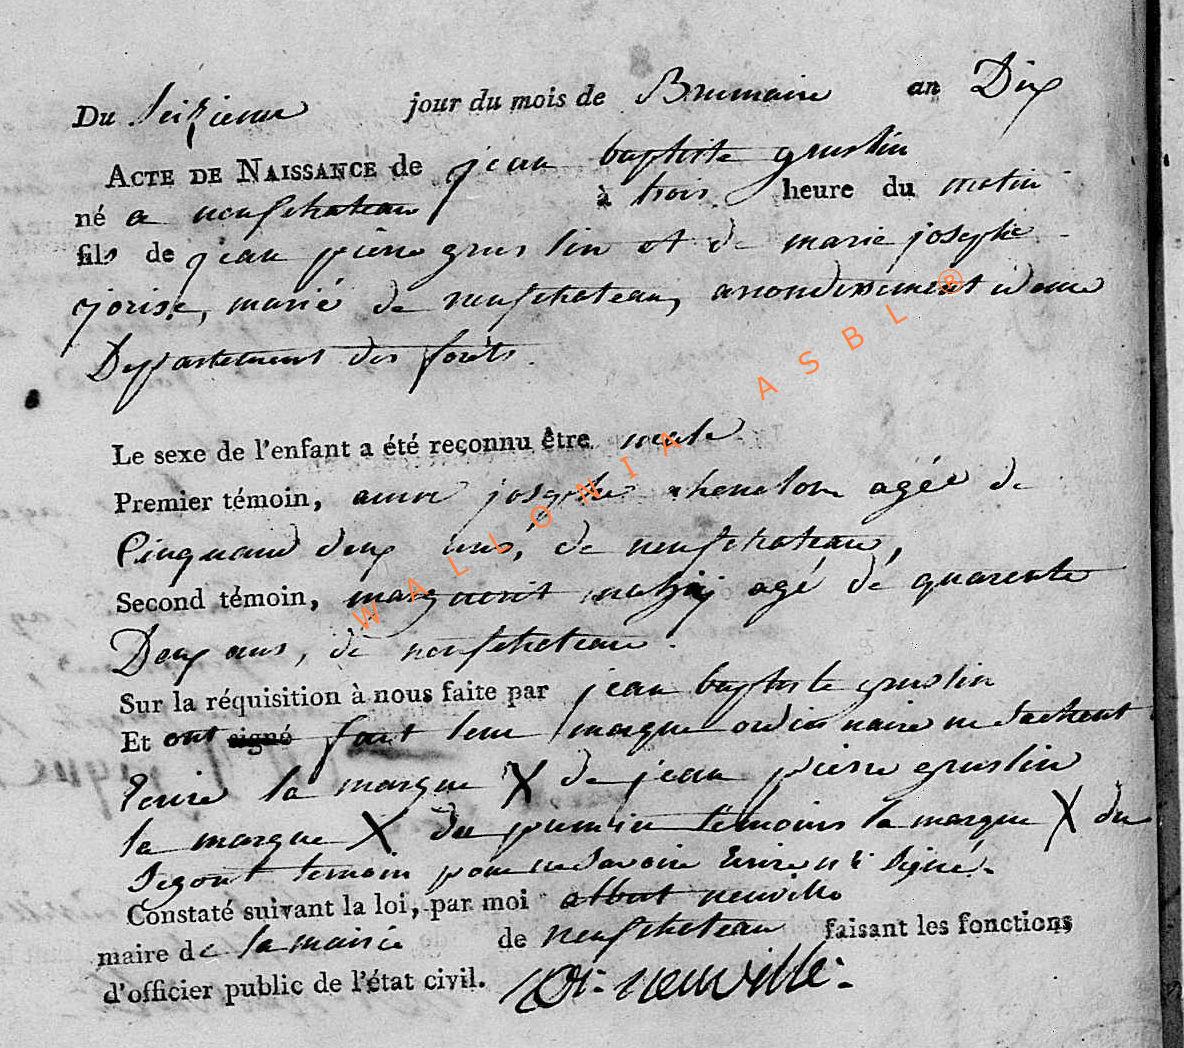 Du Seizieme jour du mois de Brumaire an Dix
ACTE DE NAISSANCE de jean baptiste gruslin
né a neufchateau à trois heure du matin
fils de jean pierre gruslin et de marie josephe
jorise, marié de neufchateau, arrondissement idem
Departement des forêts.
Le sexe de l'enfant a été reçonnu être male
Premier témoin, anne josephe agée de
Cinquand deux ans, de neufchateau,
Second témoin, marguerit agé dé quarente
Deux ans, de neufchateau.
Sur la réquisition à nous faite par jean baptiste gruslin
Et ont signé fait leur marque ordinnaire ne sachent
Ecrire la marque X de jean pierre gruslin
la marque X du premier temoins la marque X du
Segont temoin pour ne Savoire Ecrire ni Signé.
Constaté suivant la loi, par moi albert neuville
maire de la mairie de neufchateau faisant les fonctions
d'officier public de l'état civil. neuville
WALLONIA ASBL ®